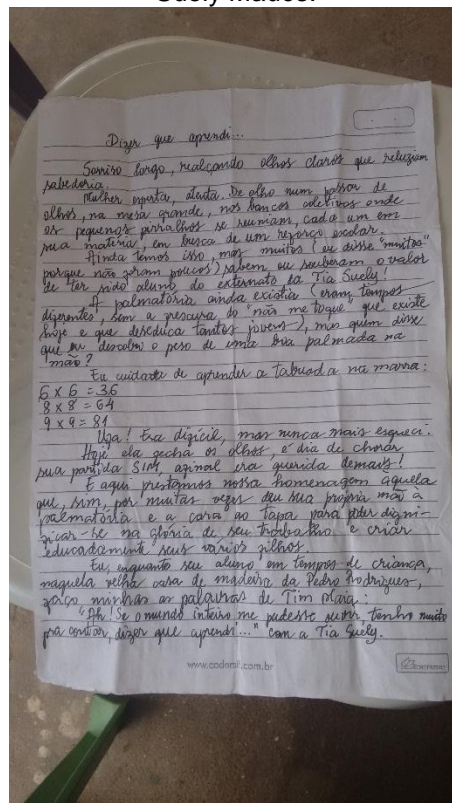 Dizer que aprendi...
Sorriso largo, realçando olhos claros que reluziam
sabedoria.
Mulher esperta, atenta. De olho num passar de
olhos, na mesa grande, nos bancos coletivos onde
os pequenos pirralhos se reuniam, cada um em
sua matéria, em busca de um reforço escolar.
Ainda temos isso, mas muitos (eu disse "muitos"
porque não foram poucos) sabem ou souberam o valor
de ter sido aluno do externato da Tia Suely!
A palmatória ainda existia (eram tempos
diferentes, sem a frescura do "não me toque" que existe
hoje e que deseduca tantos jovens), mas quem disse
que eu descobri o peso de uma boa palmada na
mão?
Eu cuidava de aprender a tabuada na marra:
6 x 6 = 36
8 x 8 = 64
9 x 9 = 81
Ufa! Era difícil, mas nunca mais esqueci.
Hoje ela fecha os olhos, é dia de chorar
sua partida SIM, afinal era querida demais!
E aqui prestamos nossa homenagem aquela
que, sim, por muitas vezes deu sua própria mão à
palmatória e a cara ao tapa para poder digni-
ficar-se na glória de seu trabalho e criar
educadamente seus vários filhos.
Eu, enquanto seu aluno em tempos de criança,
naquela velha casa de madeira da Pedro Rodrigues,
faço minhas as palavras de Tim Maia:
"Ah! Se o mundo inteiro me pudesse ouvir, tenho muito
pra contar, dizer que aprendi..." com a Tia Suely.
www.codomil.com.br